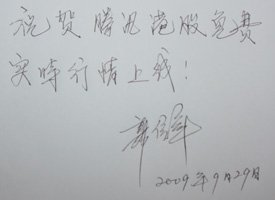 祝贺腾讯港股免费
实时行情上线！
2009年9月29日